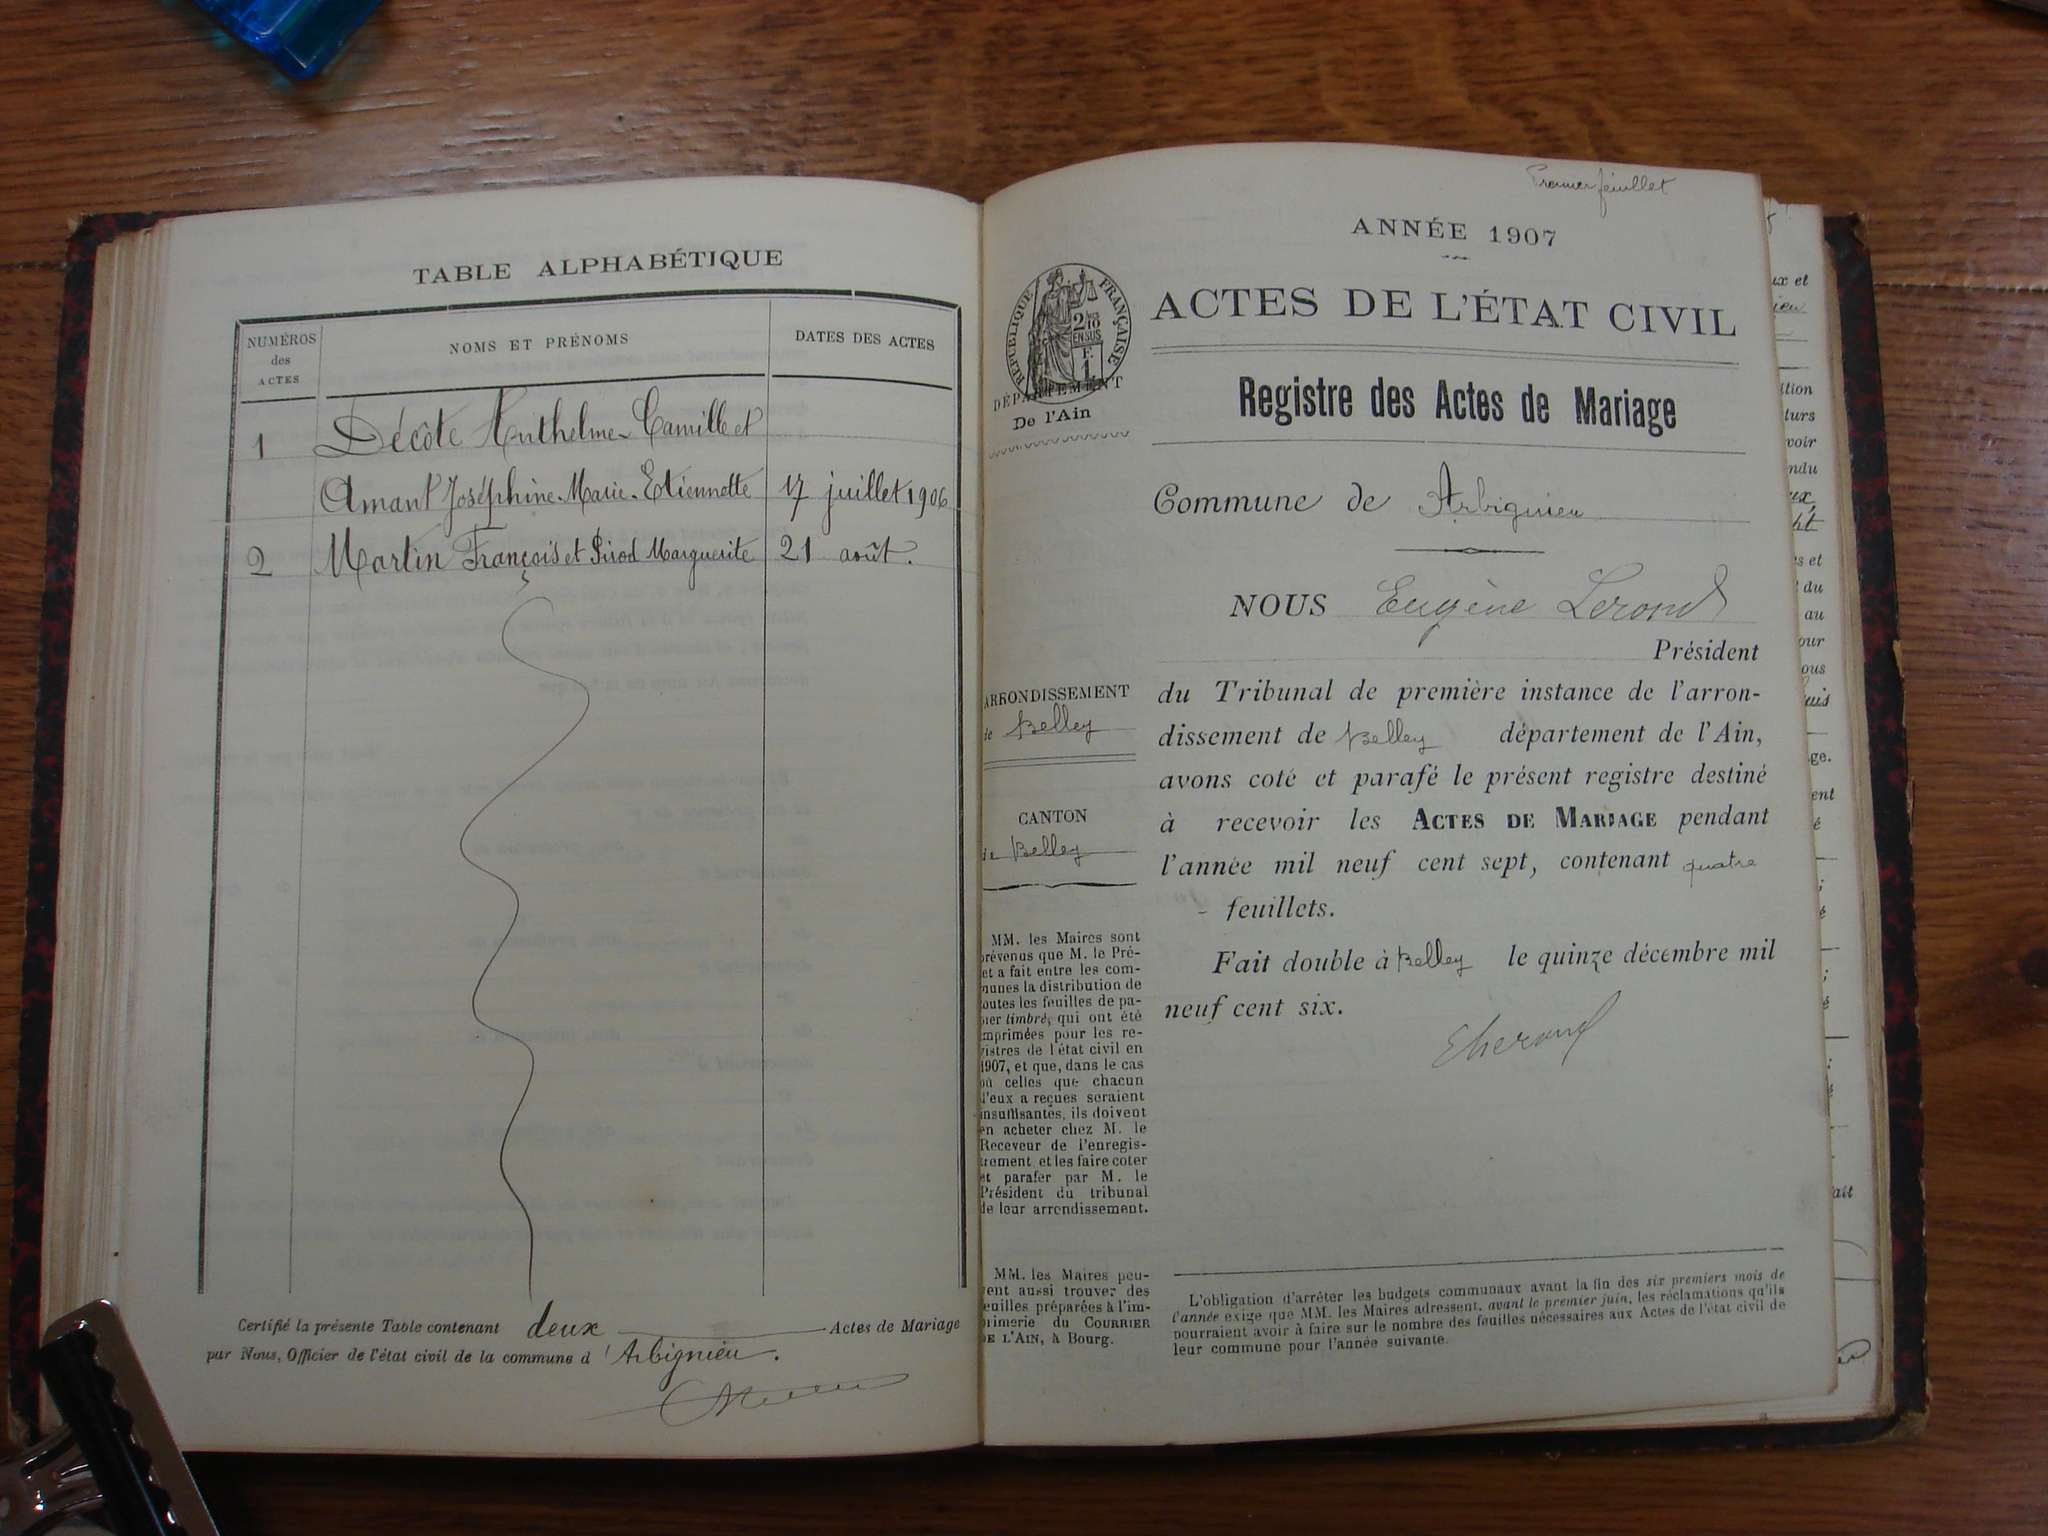 TABLE ALPHABÉTIQUE
NUMÉROS des ACTES
NOMS ET PRÉNOMS
DATES DES ACTES
1 Décôte Anthelme Camille et
Amant Joséphine-Marie-Etiennette 17 juillet 1906
2 Martin François et Pirod Marguerite 21 août.
Certifié la présente Table contenant deux Actes de Mariage
par Nous, Officier de l'état civil de la commune d'Arbignieu.
Premier feuillet
ANNÉE 1907
ACTES DE L'ÉTAT CIVIL
RÉPUBLIQUE FRANÇAISE
2/10 EN SUS
F.
1
DÉPARTEMENT
De l'Ain
Registre des Actes de Mariage
Commune de Arbignieu
NOUS Eugène Lerond
Président
ARRONDISSEMENT
de Belley
CANTON
de Belley
du Tribunal de première instance de l'arron-
dissement de Belley département de l'Ain,
avons coté et parafé le présent registre destiné
à recevoir les ACTES DE MARIAGE pendant
l'année mil neuf cent sept, contenant quatre
feuillets.
Fait double à Belley le quinze décembre mil
neuf cent six.
MM. les Maires sont
prévenus que M. le Pré-
et a fait entre les com-
munes la distribution de
toutes les feuilles de pa-
pier timbré, qui ont été
imprimées pour les re-
gistres de l'état civil en
1907, et que, dans le cas
où celles que chacun
d'eux a reçues seraient
insuffisantes, ils doivent
en acheter chez M. le
Receveur de l'enregis-
trement et les faire coter
et parafer par M. le
Président du tribunal
de leur arrondissement.
MM. les Maires peu-
vent aussi trouver des
feuilles préparées à l'im-
primerie du COURRIER
DE L'AIN, à Bourg.
L'obligation d'arrêter les budgets communaux avant la fin des six premiers mois de
l'année exige que MM. les Maires adressent, avant le premier juin, les réclamations qu'ils
pourraient avoir à faire sur le nombre des feuilles nécessaires aux Actes de l'état civil de
leur commune pour l'année suivante.